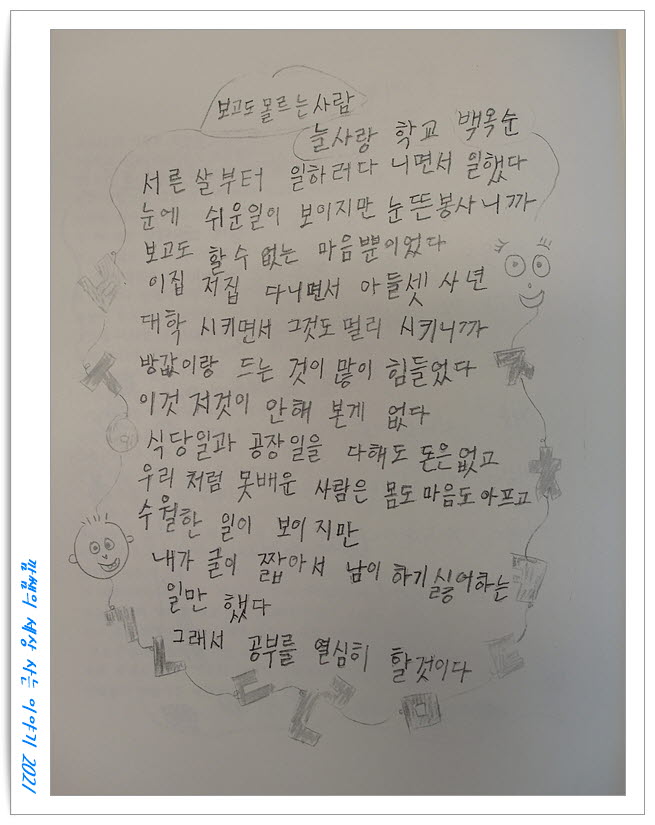 보고도 몰르는 사람
눈사랑 학교 백옥순
서른 살부터 일하러다니면서 일했다
눈에 쉬운일이 보이지만 눈뜬봉사니까
보고도 할 수 없는 마음뿐이었다
이집 저집 다니면서 아들셋 사년
대학 시키면서 그것도 멀리 시키니까
방값이랑 드는 것이 많이 힘들었다
이것 저것이 안해 본게 없다
식당일과 공장일을 다해도 돈은없고
우리 처럼 못배운 사람은 몸도 마음도 아프고
수월한 일이 보이지만
내가 글이 짧아서 남이 하기싫어하는
일만 했다
그래서 공부를 열심히 할것이다
세상 사는 이야기 2021